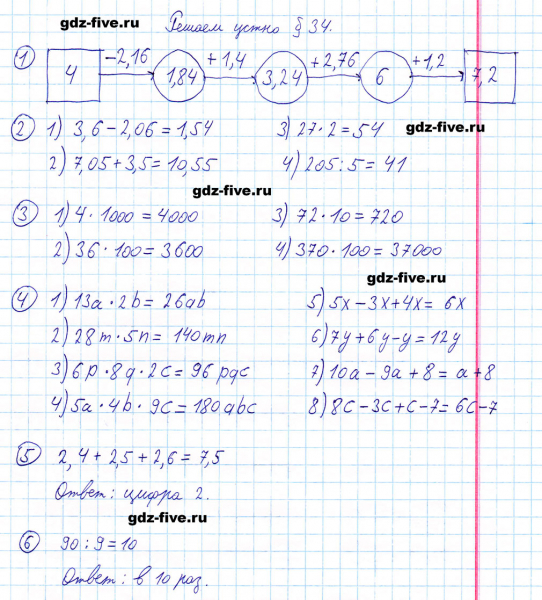 gdz-five.ru
Решаем устно § 34.
① 4 −2,16 1,84 +1,4 3,24 +2,76 6 +1,2 7,2
② 1) 3,6 − 2,06 = 1,54 3) 27 · 2 = 54 gdz-five.ru
2) 7,05 + 3,5 = 10,55 4) 205 : 5 = 41
gdz-five.ru
③ 1) 4 · 1000 = 4000 3) 72 · 10 = 720
2) 36 · 100 = 3600 4) 370 · 100 = 37000
gdz-five.ru
④ 1) 13a · 2b = 26ab 5) 5x − 3x + 4x = 6x
2) 28m · 5n = 140mn 6) 7y + 6y − y = 12y
3) 6p · 8q · 2c = 96pqc 7) 10a − 9a + 8 = a + 8
4) 5a · 4b · 9c = 180abc 8) 8c − 3c + c − 7 = 6c − 7
⑤ 2,4 + 2,5 + 2,6 = 7,5
Ответ: цифра 2.
gdz-five.ru
⑥ 90 : 9 = 10
Ответ: в 10 раз.